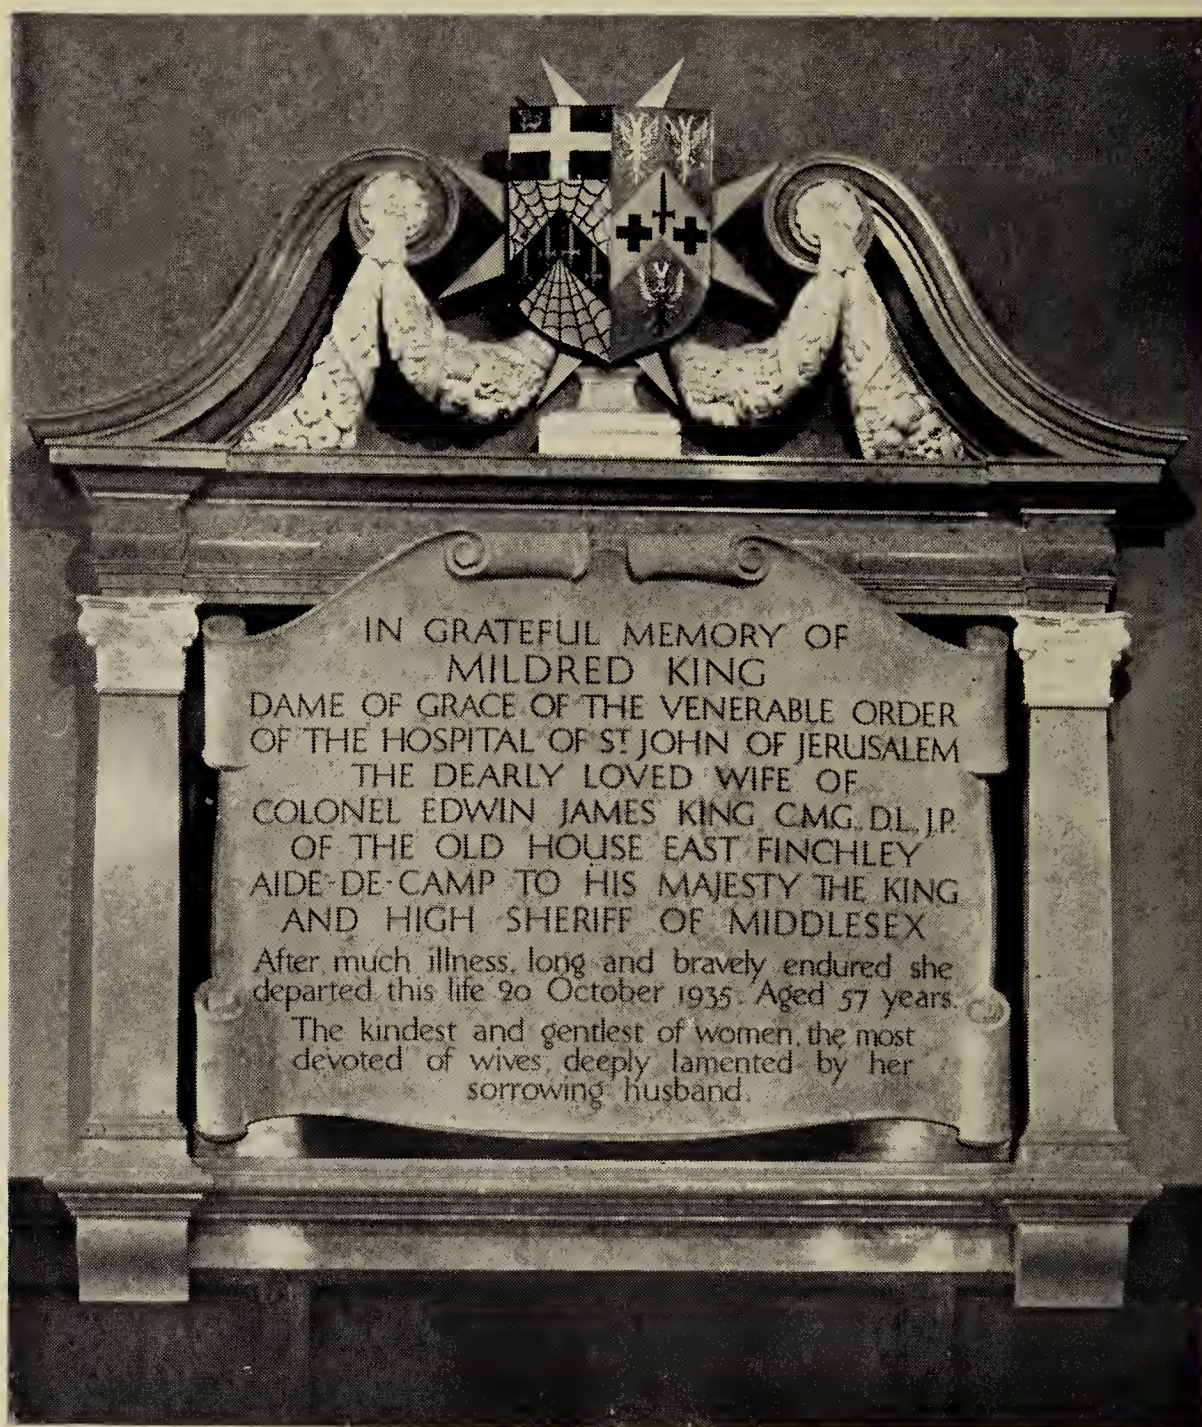 IN GRATEFUL MEMORY OF
MILDRED KING
DAME OF GRACE OF THE VENERABLE ORDER
OF THE HOSPITAL OF ST JOHN OF JERUSALEM
THE DEARLY LOVED WIFE OF
COLONEL EDWIN JAMES KING C.M.G. D.L. J.P.
OF THE OLD HOUSE EAST FINCHLEY
AIDE-DE-CAMP TO HIS MAJESTY THE KING
AND HIGH SHERIFF OF MIDDLESEX
After much illness, long and bravely endured she
departed this life 20 October 1935. Aged 57 years.
The kindest and gentlest of women, the most
devoted of wives, deeply lamented by her
sorrowing husband.